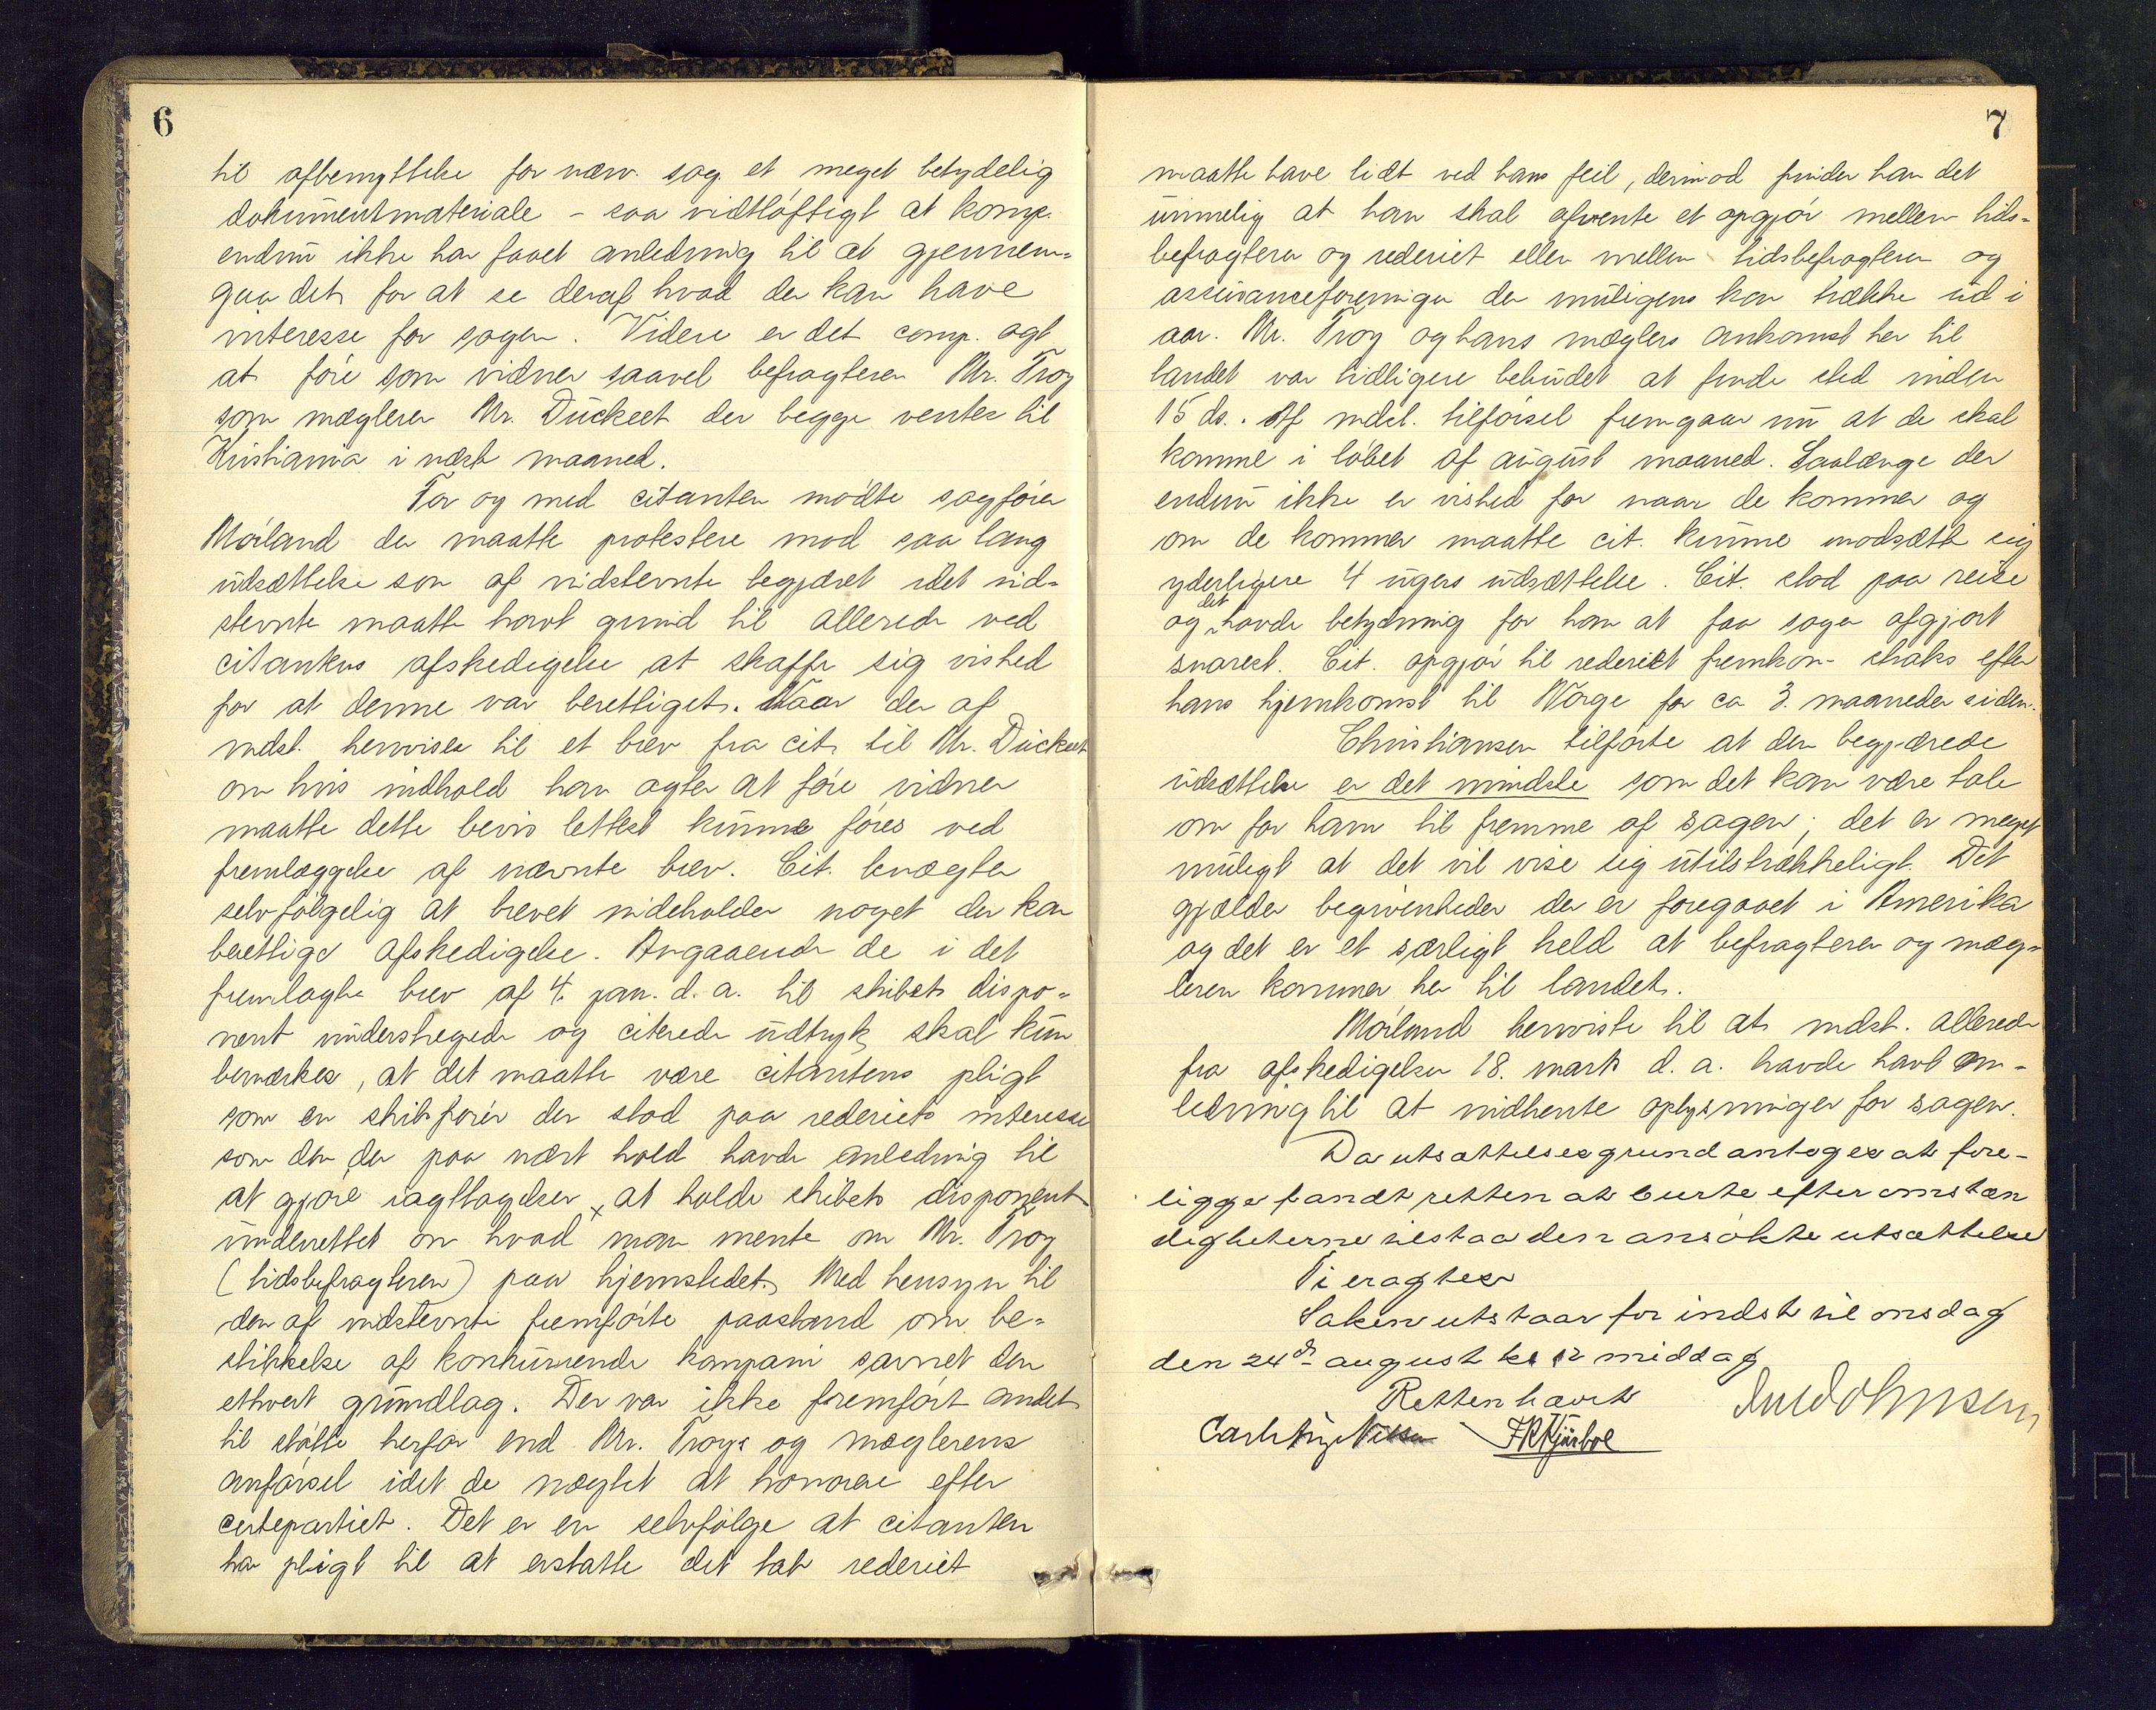 6
til afbenyttelse for nærv. sag et meget betydelig
dokumentmateriale – saa vidtløftigt at komp.
endnu ikke har faaet anledning til at gjennem-
gaa det for at se deraf hvad der kan have
interesse for sagen. Videre er det comp. agt
at føre som vidner saavel befragteren Mr. Troy
som mægleren Mr. Duckeet der begge ventes til
Kristiania i næste maaned.
For og med citanten mødte sagfører
Møiland der maatte protestere mod saa lang
udsættelse som af indstevnte begjæret idet ind-
stevnte maatte havt grund til allerede ved
citantens afskedigelse at skaffe sig vished
for at denne var berettiget. Naar der af
indst. henvises til et brev fra cit. til Mr. Duckeet
om hvis indhold han agter at føre vidner
maatte dette bevis lettest kunne føres ved
fremlæggelse af nævnte brev. Cit. benægter
selvfølgelig at brevet indeholder noget der kan
berettige afskedigelse. Angaaende de i det
fremlagte brev af 4. jan. d. a. til skibets dispo-
nent understregede og citerede udtryk skal kun
bemærkes, at det maatte være citantens pligt
som en skibsfører der stod paa rederiets interesse
som den der paa nært hold havde anledning til
at gjøre iagttagelser x at holde skibets disponent
underrettet om hvad man mente om Mr. Troy
(tidsbefragteren) paa hjemstedet. Med hensyn til
den af indstevnte fremførte paastand om be-
stikkelse af konkurrerende kompani savnet den
ethvert grundlag. Der var ikke fremført andet
til støtte herfor end Mr. Troys og mæglerens
anførsel idet de nægtet at honorere efter
certepartiet. Det er en selvfølge at citanten
har pligt til at erstatte det tab rederiet
7
maatte have lidt ved hans feil, derimod finder han det
urimelig at han skal afvente et opgjør mellem tids-
befragteren og rederiet eller mellem tidsbefragteren og
assuranceforeninger der muligens kan trække ud i
aar. Mr. Troy og hans mæglers ankomst her til
landet var tidligere bebudet at finde sted inden
15 ds. Af indst. tilførsel fremgaar nu at de skal
komme i løbet af august maaned. Saalænge der
endnu ikke er vished for naar de kommer og
om de kommer maatte cit. kunne modsætte sig
yderligere 4 ugers udsættelse. Cit. stod paa reise
og det havde betydning for ham at faa sagen afgjort
snarest. Cit. opgjør til rederiet fremkom straks efter
hans hjemkomst til Norge for ca 3. maaneder siden.
Christiansen tilførte at den begjærede
udsættelse er det mindste som det kan være tale
om for ham til fremme af sagen; det er meget
muligt at det vil vise sig utilstrækkeligt. Det
gjælder begivenheder der er foregaaet i Amerika
og det er et særligt held at befragteren og mæg-
leren kommer her til landet.
Møiland henviste til at indst. allerede
fra afskedigelsen 18. marts d. a. havde havt an-
ledning til at indhente oplysninger for sagen.
Da utsættelsesgrund antages at fore-
ligge fandt retten at burte efter omstæn
digheterne tilstaa den ansøkte utsættelse
Ti eragtes
Saken utstaar for indst til onsdag
den 24de august kl 12 middag
Retten hævet
Carl Aug Nilsen F R Kjørboe